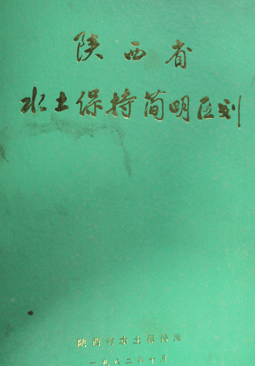 陕西省
水土保持简明区划
陕西省水土保持局
一九八二年十月